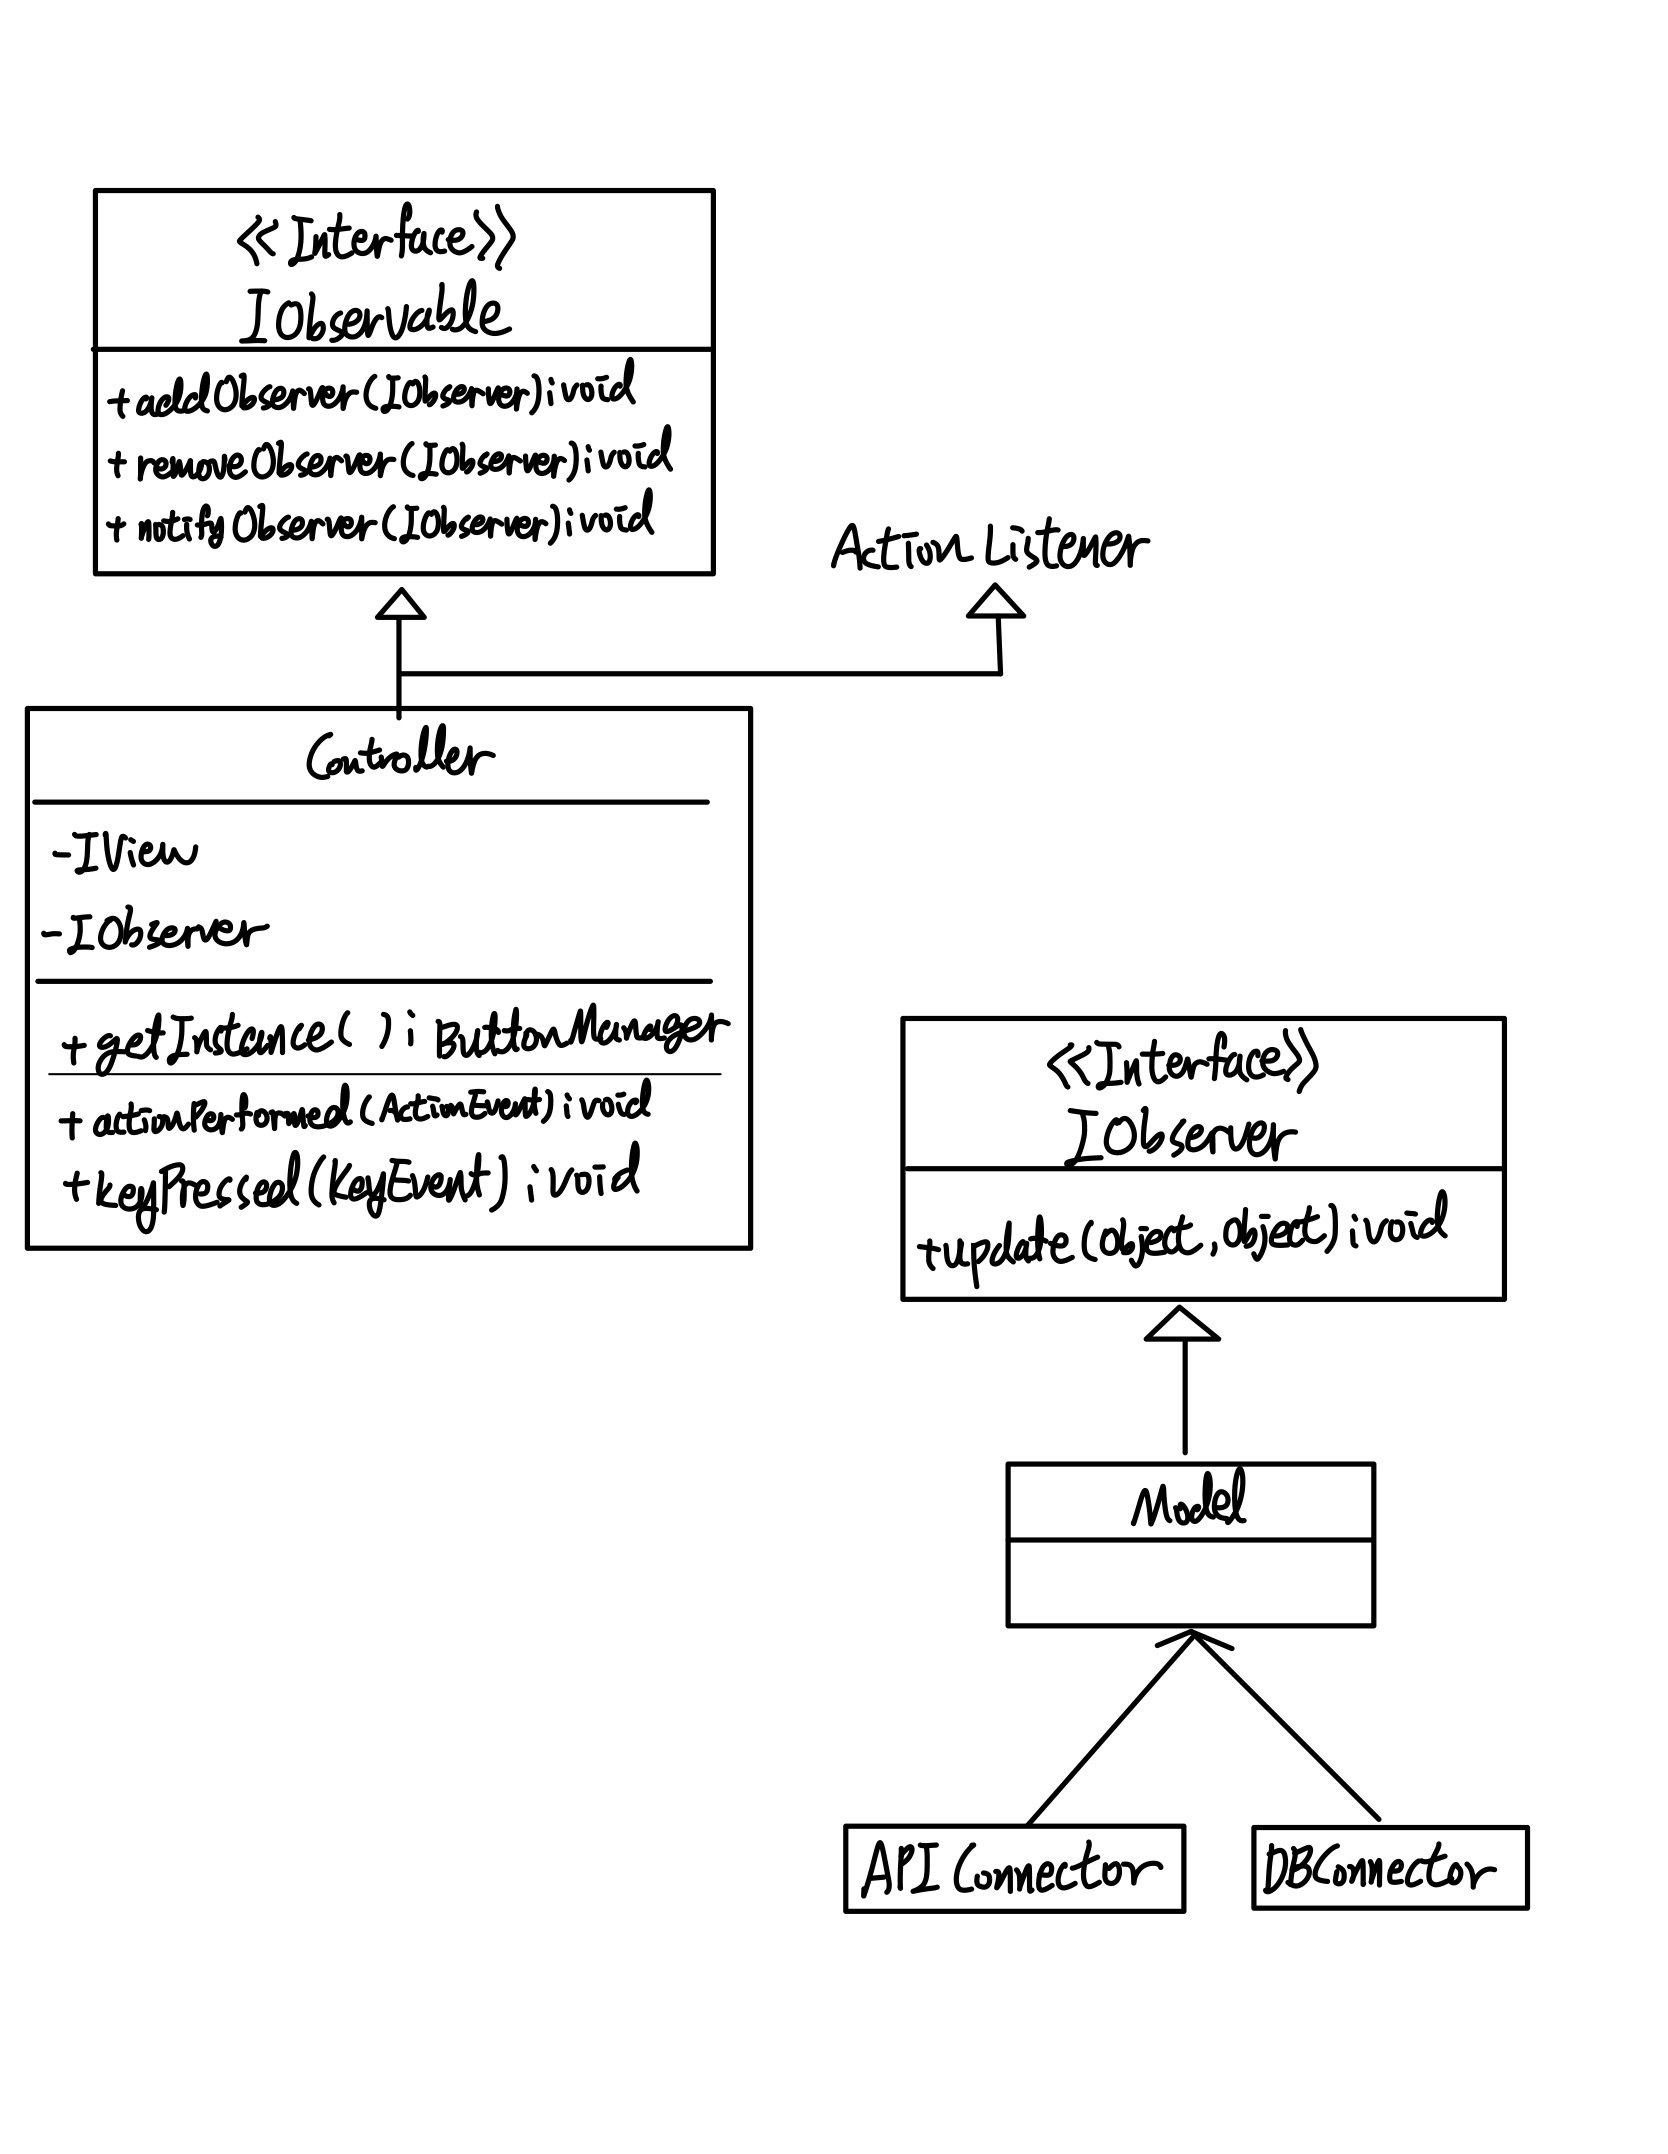 <<Interface>>
IObservable
+ addObserver(IObserver): void
+ removeObserver(IObserver): void
+ notifyObserver(IObserver): void
Action Listener
Controller
- IView
- IObserver
+ getInstance( ): ButtonManager
+ actionPerformed(ActionEvent): void
+ keyPressed(KeyEvent): void
<<Interface>>
IObserver
+update(Object, Object): void
Model
API Connector
DBConnector